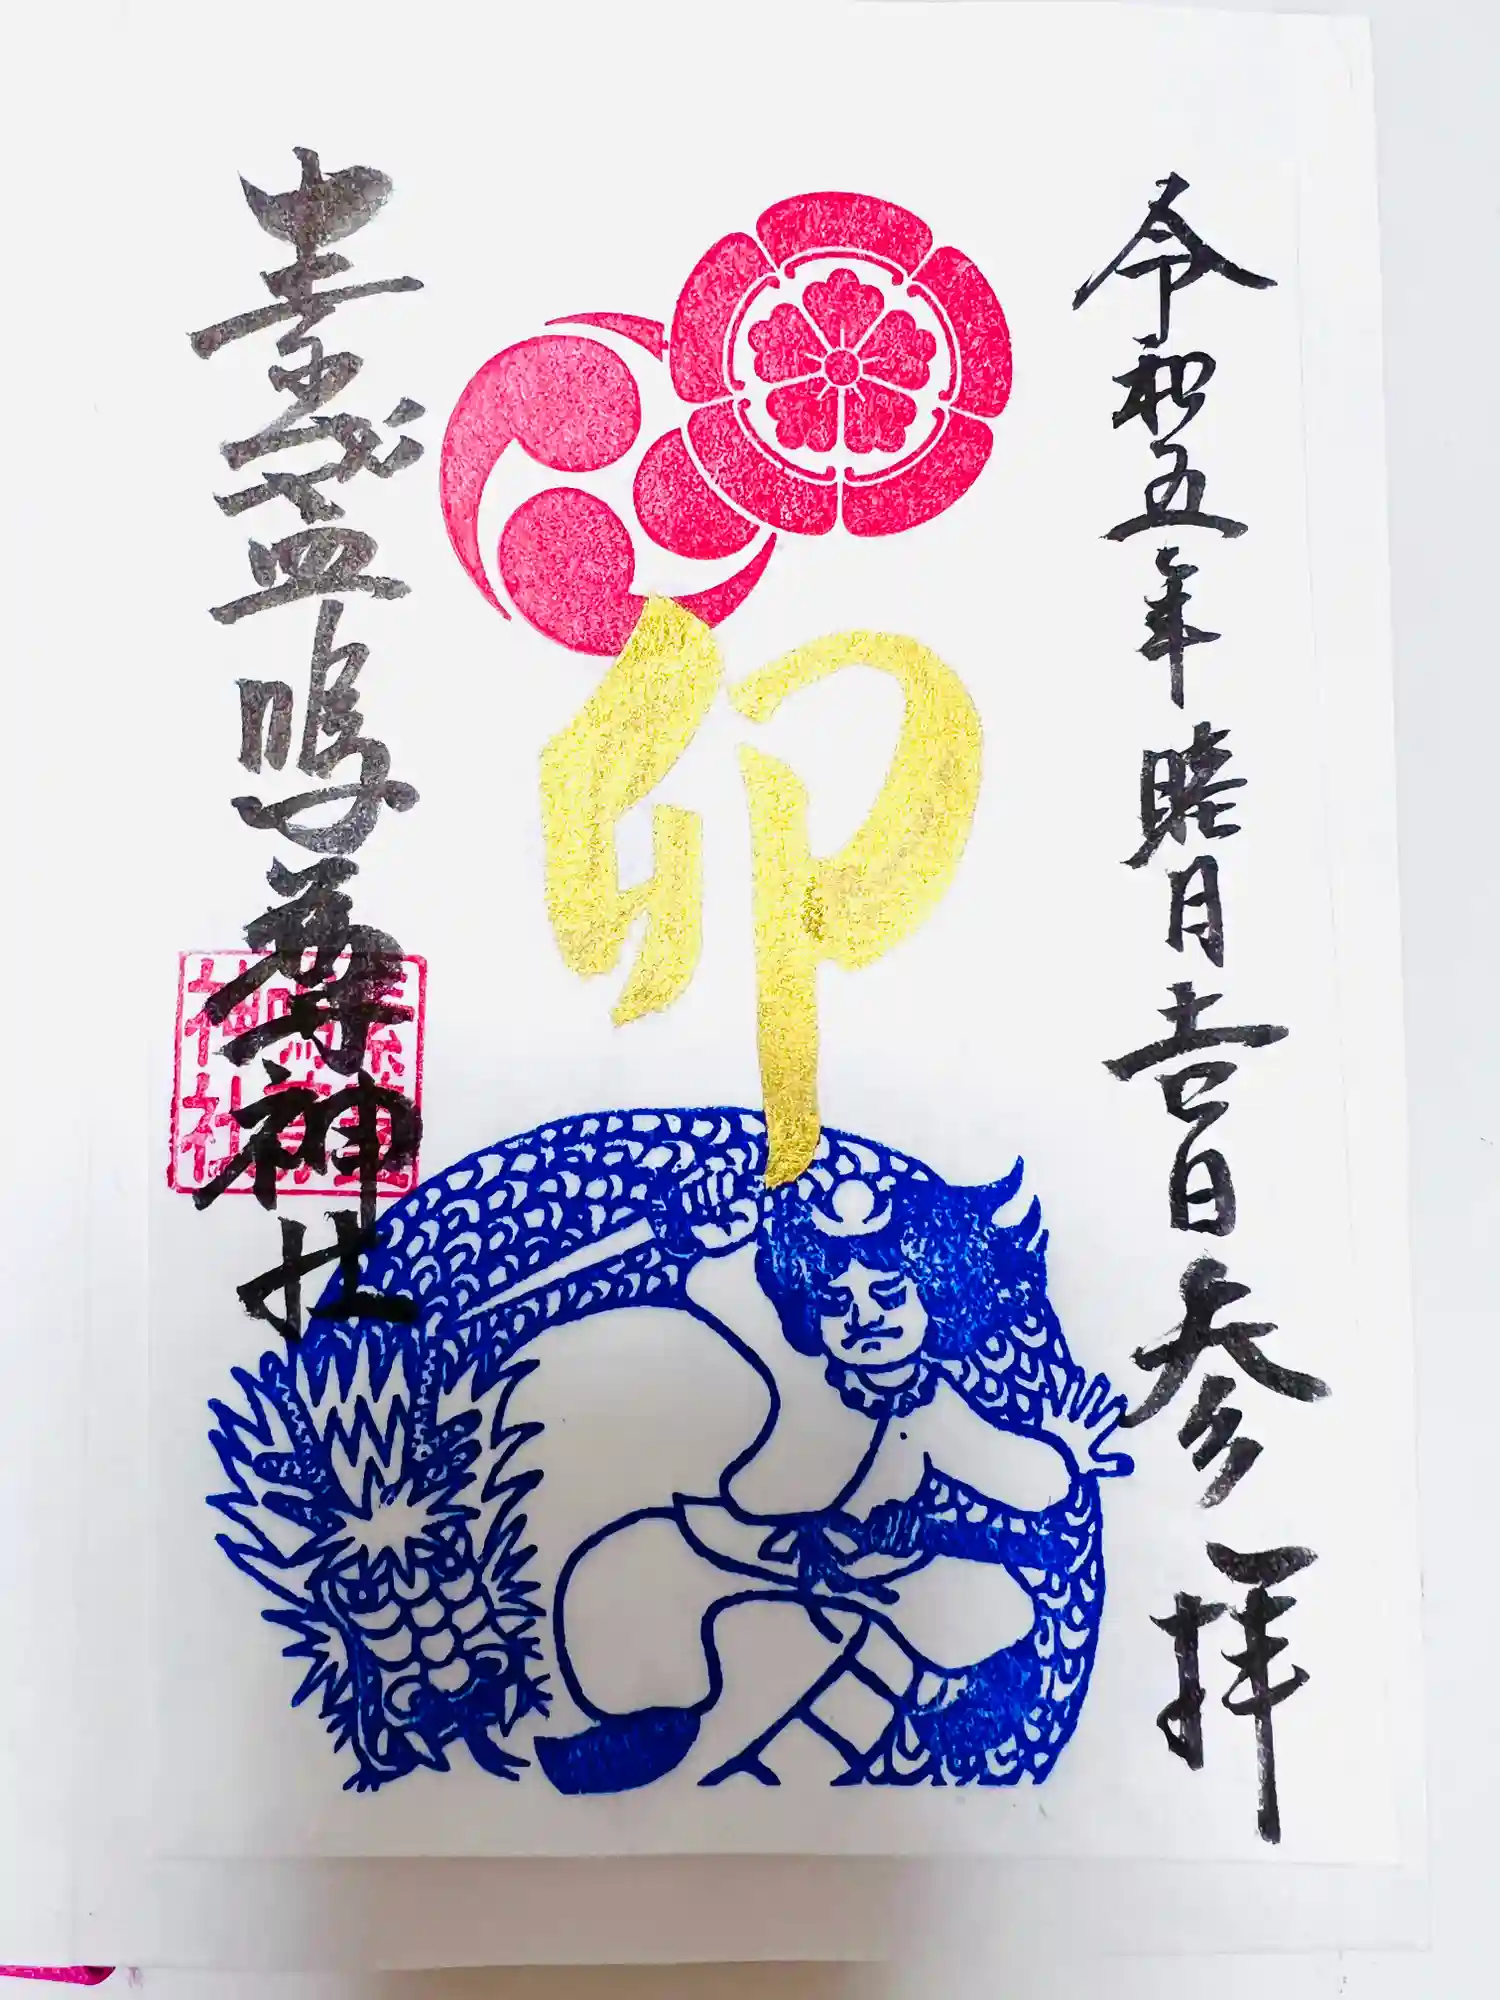 令和五年睦月壱日参拝
卯
素盞嗚尊神社